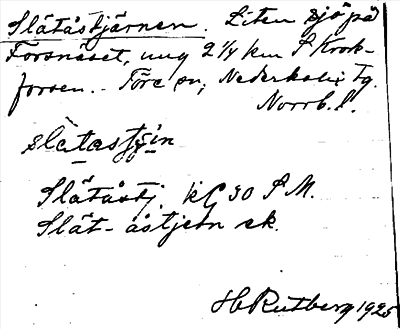 Slåtåstjärnen. Liten sjö på
Forsnäset, ung 2 1/4 km S Krok-
forsen. - Töre sn, Nederkalix tg.
Norrb. l.
slåtastjän
Slåtåstj. kG 30 S M.
Slåt-åstjern sk.
HRutberg 1925